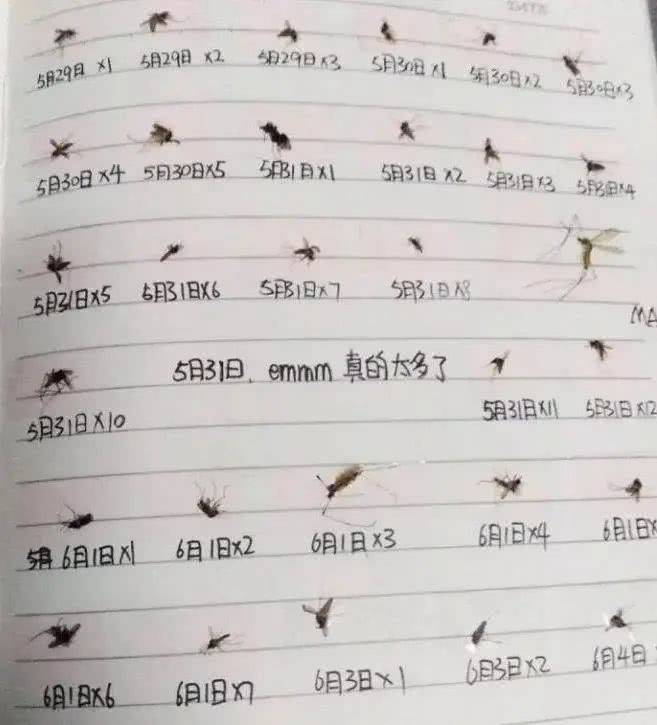 DATE
5月29日 x1 5月29日 x2 5月29日x3 5月30日x1 5月30日x2 5月30日x3
5月30日x4 5月30日x5 5月31日x1 5月31日x2 5月31日x3 5月31日x4
5月31日x5 5月31日x6 5月31日x7 5月31日x8
MA
5月31日, emmm 真的太多了
5月31日x10 5月31日x11 5月31日x12
6月1日x1 6月1日x2 6月1日x3 6月1日x4 6月1日x
6月1日x6 6月1日x7 6月3日x1 6月3日x2 6月4日